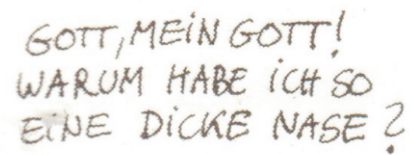 GOTT, MEIN GOTT!
WARUM HABE ICH SO
EINE DICKE NASE?